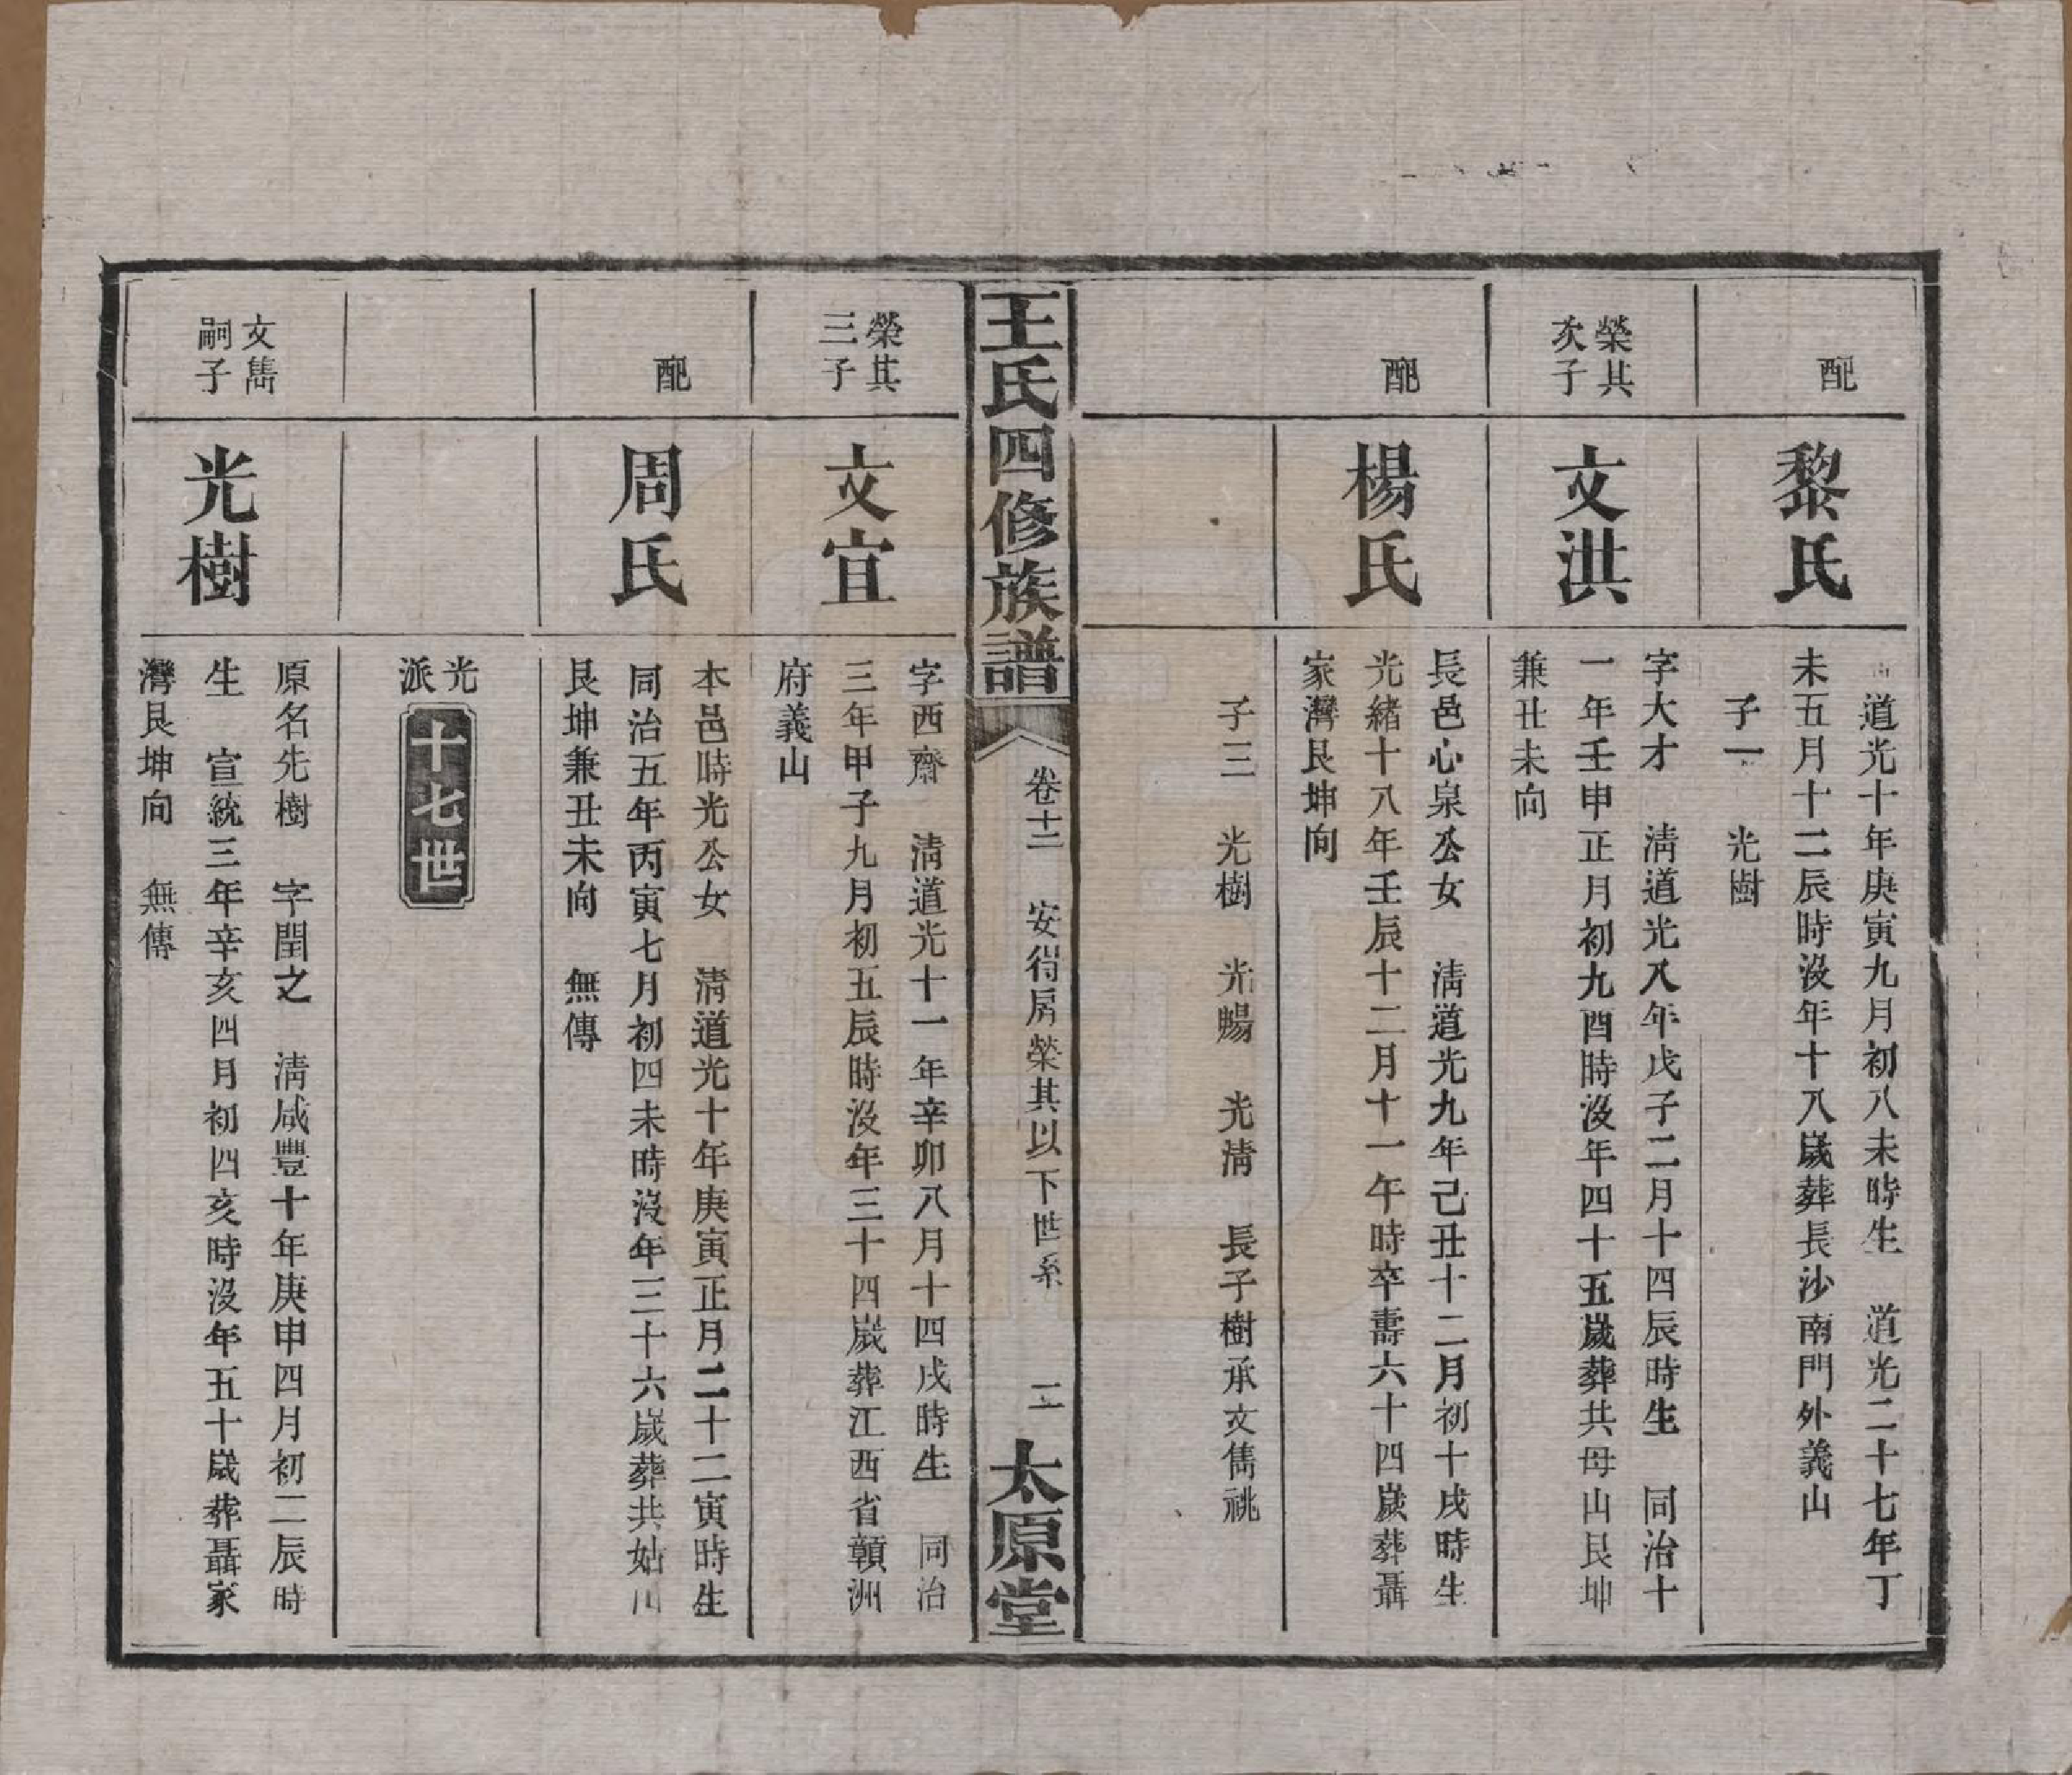 配
黎氏
道光十年庚寅九月初八未時生　道光二十七年丁
未五月十二辰時沒年十八歲葬長沙南門外義山
子一　光樹
榮其
次子
文洪
字大才　淸道光八年戊子二月十四辰時生　同治十
一年壬申正月初九酉時沒年四十五歲葬共母山艮坤
兼丑未向
配
楊氏
長邑心泉公女　淸道光九年己丑十二月初十戌時生
光緒十八年壬辰十二月十一午時卒壽六十四歲葬聶
家灣艮坤向
子三　光樹　光賜　光淸　長子樹承文雋祧
王氏四修族譜
卷十二　安得房榮其以下世系
二
太原堂
榮其
三子
文宜
字西齋　淸道光十一年辛卯八月十四戌時生　同治
三年甲子九月初五辰時沒年三十四歲葬江西省贛洲
府義山
配
周氏
本邑時光公女　淸道光十年庚寅正月二十二寅時生
同治五年丙寅七月初四未時沒年三十六歲葬共姑山
艮坤兼丑未向　無傳
光
派
十七世
文雋
嗣子
光樹
原名先樹　字閏之　淸咸豐十年庚申四月初二辰時
生　宣統三年辛亥四月初四亥時沒年五十歲葬聶家
灣艮坤向　無傳